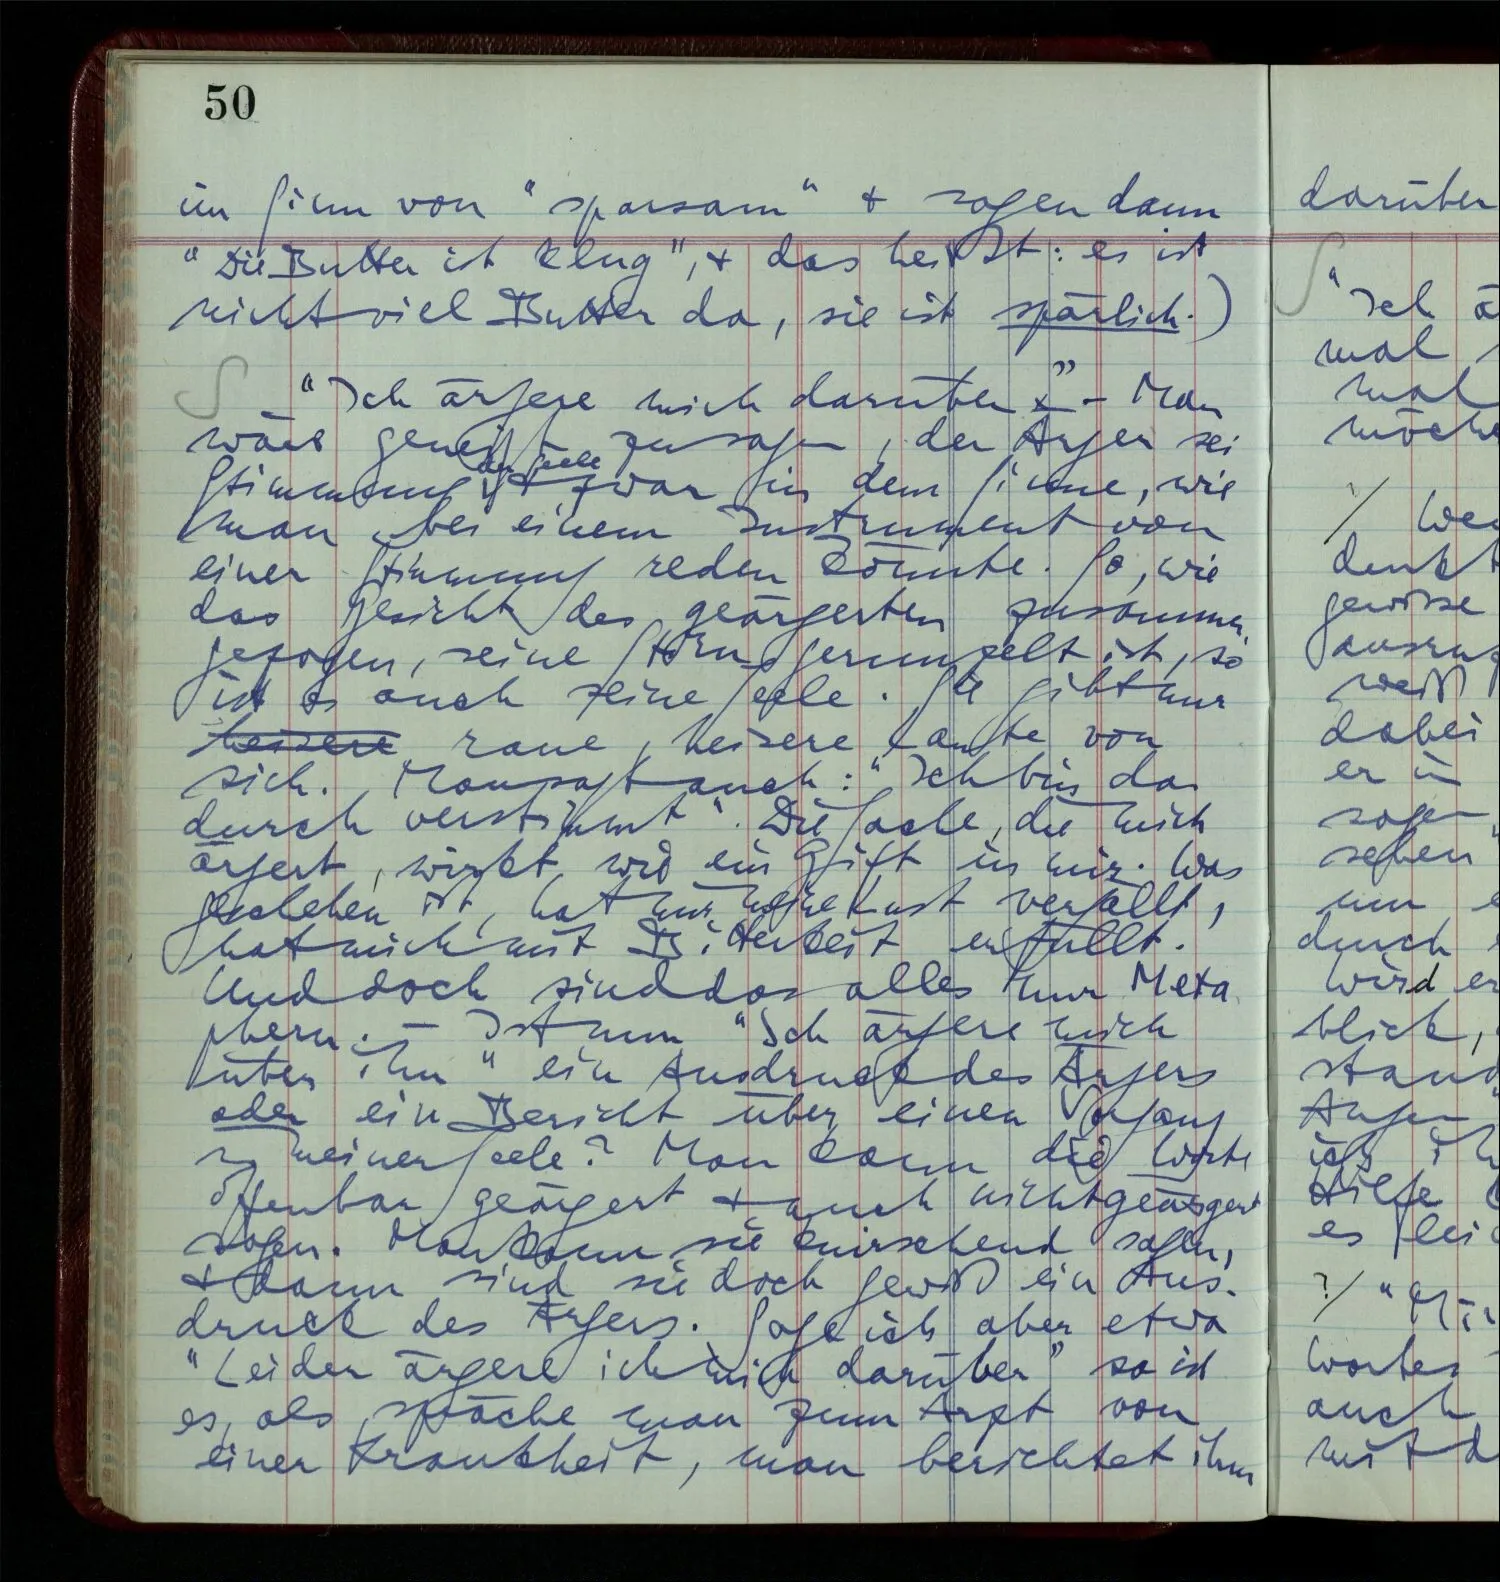 50
im Sinn von "sparsam" + sagen dann
"Die Butter ist klug", + das heißt: es ist
nicht viel Butter da, sie ist spärlich.)
S "Ich ärgere mich darüber." – Man
wäre geneigt zu sagen, der Ärger sei
der Seele
Stimmung + zwar in dem Sinne, wie
man bei einem Instrument von
einer Stimmung reden könnte. So, wie
das Gesicht des geärgerten zusammen-
gezogen, seine Stirn gerunzelt ist, so
ist es auch seine Seele. Sie gibt nur
heisere raue, heisere Laute von
sich. Man sagt auch: "Ich bin da
durch verstimmt". Die Sache, die mich
ärgert, wirkt wie ein Gift in mir. Was
geschehen ist, hat mir meine Lust vergällt,
hat mich mit Bitterkeit erfüllt.
Und doch sind das alles nur Meta
phern. – Ist nun "Ich ärgere mich
über ihn" ein Ausdruck des Ärgers
oder ein Bericht über einen Vorgang
in meiner Seele? Man kann die Worte
offenbar geärgert + auch nicht geärgert
sagen. Man kann sie knirschend sagen,
+ dann sind sie doch gewiß ein Aus-
druck des Ärgers. Sage ich aber etwa
"Leider ärgere ich mich darüber" so ist
es, als spräche man zum Arzt von
einer Krankheit, man berichtet ihm
darüber
S "Ich
mal
mal
/
denkt
gewisse
weiß
dabei
er in
sagen
sehen
um
durch
wird
blick,
stand
Augen
ich
Hilfe
es
?/ "
Wortes
auch
mit